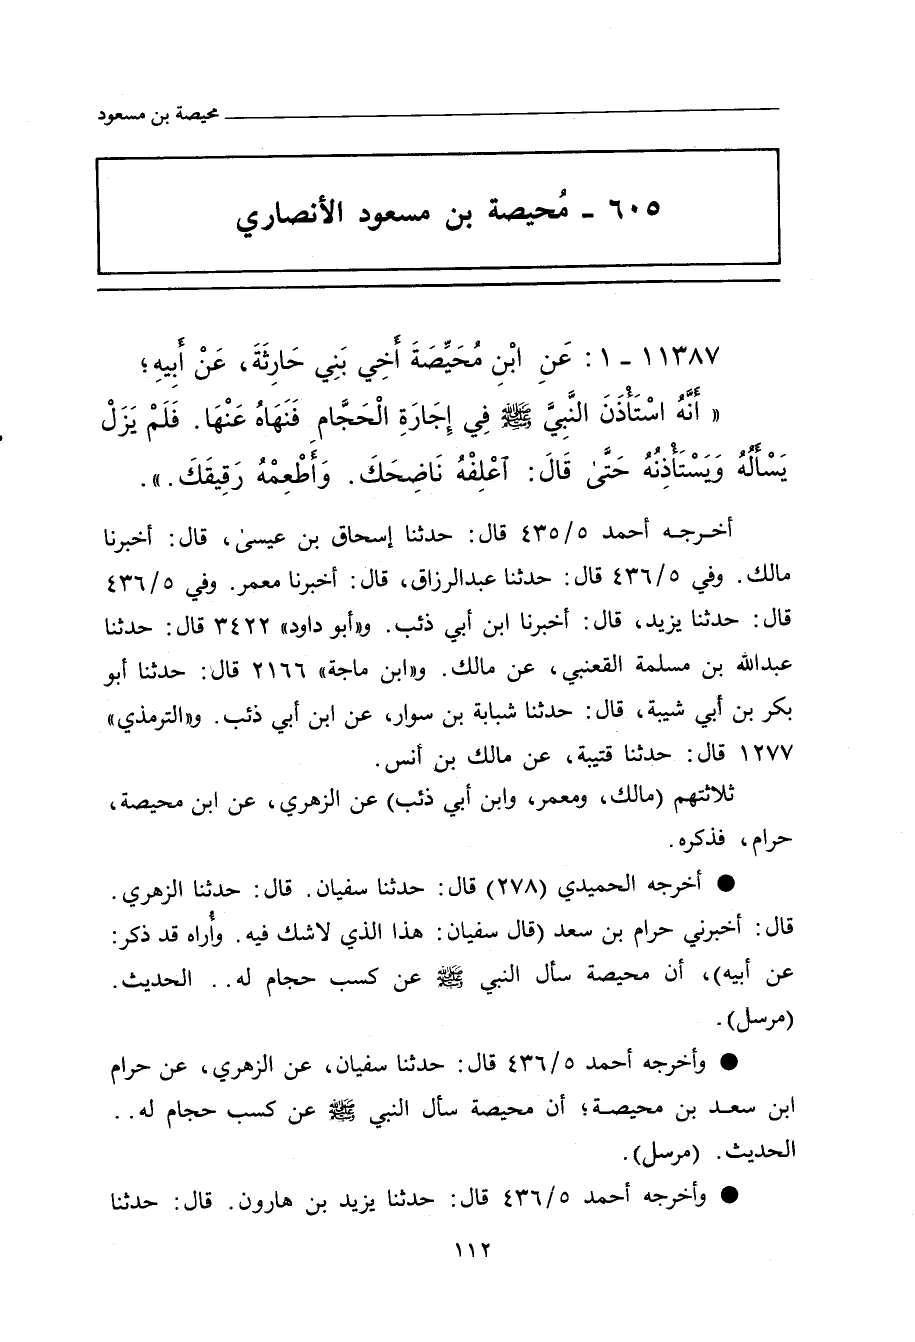 محيصة بن مسعود
٦٠٥ ـ مُحيصة بن مسعود الأنصاري
١١٣٨٧ ـ ١ : عَنِ ابْنِ مُحَيِّصَةَ أَخِي بَنِي حَارِثَةَ، عَنْ أَبِيهِ؛
« أَنَّهُ اسْتَأْذَنَ النَّبِيَّ ﷺ فِي إِجَارَةِ الْحَجَّامِ فَنَهَاهُ عَنْهَا. فَلَمْ يَزَلْ
يَسْأَلُهُ وَيَسْتَأْذِنُهُ حَتَّىٰ قَالَ: اَعْلِفْهُ نَاضِحَكَ. وَأَطْعِمْهُ رَقِيقَكَ. ».
أخـرجـه أحمد ٤٣٥/٥ قال: حدثنا إسحاق بن عيسىٰ، قال: أخبرنا
مالك. وفي ٤٣٦/٥ قال: حدثنا عبدالرزاق، قال: أخبرنا معمر. وفي ٤٣٦/٥
قال: حدثنا يزيد، قال: أخبرنا ابن أبي ذئب. و«أبو داود» ٣٤٢٢ قال: حدثنا
عبدالله بن مسلمة القعنبي، عن مالك. و«ابن ماجة» ٢١٦٦ قال: حدثنا أبو
بكر بن أبي شيبة، قال: حدثنا شبابة بن سوار، عن ابن أبي ذئب. و«الترمذي»
١٢٧٧ قال: حدثنا قتيبة، عن مالك بن أنس.
ثلاثتهم (مالك، ومعمر، وابن أبي ذئب) عن الزهري، عن ابن محيصة،
حرام، فذكره.
● أخرجه الحميدي (٢٧٨) قال: حدثنا سفيان. قال: حدثنا الزهري.
قال: أخبرني حرام بن سعد (قال سفيان: هذا الذي لاشك فيه. وأُراه قد ذكر:
عن أبيه)، أن محيصة سأل النبي ﷺ عن كسب حجام له. . الحديث.
(مرسل).
● وأخرجه أحمد ٤٣٦/٥ قال: حدثنا سفيان، عن الزهري، عن حرام
ابن سعـد بن محيصـة؛ أن محيصة سأل النبي ﷺ عن كسب حجام له. .
الحديث. (مرسل).
● وأخرجه أحمد ٤٣٦/٥ قال: حدثنا يزيد بن هارون. قال: حدثنا
١١٢